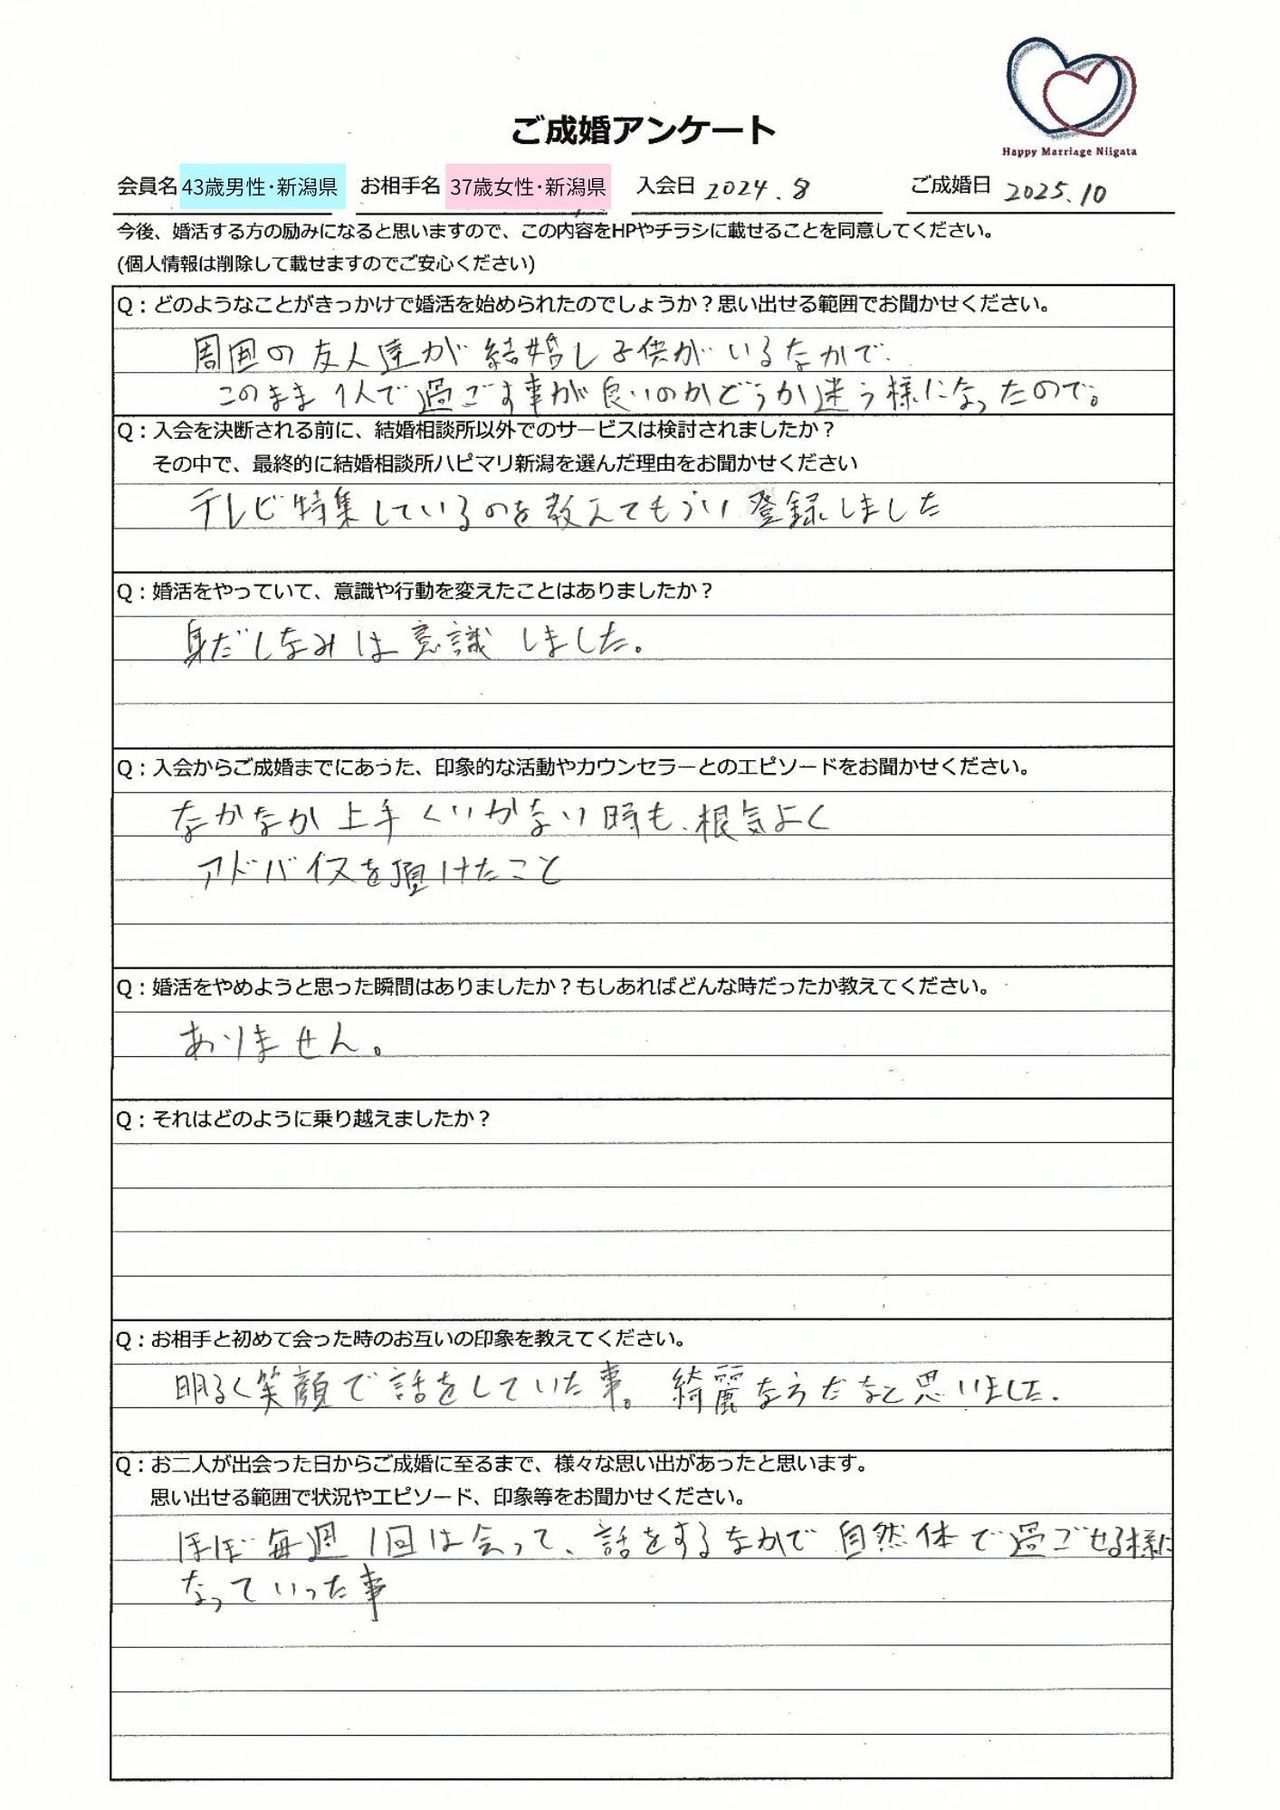 Happy Marriage Niigata
ご成婚アンケート
会員名 43歳男性・新潟県 お相手名 37歳女性・新潟県 入会日 2024.8 ご成婚日 2025.10
今後、婚活する方の励みになると思いますので、この内容をHPやチラシに載せることを同意してください。
(個人情報は削除して載せますのでご安心ください)
Q：どのようなことがきっかけで婚活を始められたのでしょうか？思い出せる範囲でお聞かせください。
周囲の友人達が結婚し子供がいるなかで、
このまま1人で過ごす事が良いのかどうか迷う様になったので。
Q：入会を決断される前に、結婚相談所以外でのサービスは検討されましたか？
その中で、最終的に結婚相談所ハピマリ新潟を選んだ理由をお聞かせください
テレビ特集しているのを教えてもらい登録しました
Q：婚活をやっていて、意識や行動を変えたことはありましたか？
身だしなみは意識しました。
Q：入会からご成婚までにあった、印象的な活動やカウンセラーとのエピソードをお聞かせください。
なかなか上手くいかない時も、根気よく
アドバイスを頂けたこと
Q：婚活をやめようと思った瞬間はありましたか？もしあればどんな時だったか教えてください。
ありません。
Q：それはどのように乗り越えましたか？
Q：お相手と初めて会った時のお互いの印象を教えてください。
明るく笑顔で話をしていた事。綺麗な方だなと思いました.
Q：お二人が出会った日からご成婚に至るまで、様々な思い出があったと思います。
思い出せる範囲で状況やエピソード、印象等をお聞かせください。
ほぼ毎週1回は会って、話をするなかで自然体で過ごせる様に
なっていった事